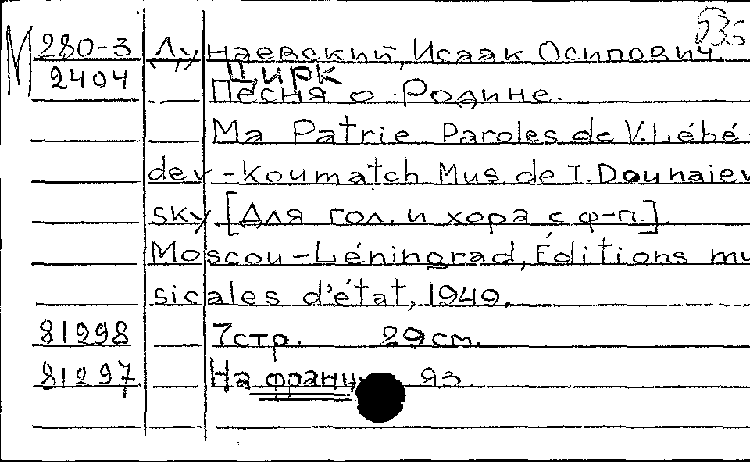 М 280-3 Дунаевский, Исаак Осипович.
2404 Цирк
Песня о Родине.
Ma Patrie Paroles de V. Lébé-
dev-Koumatch Mus. de I. Dounaiev
sky [Для гол. и хора с ф-п.]
Moscou-Léningrad, Éditions mu
sicales d'état, 1949.
81298 7 стр. 29 см.
81297 На франц яз.